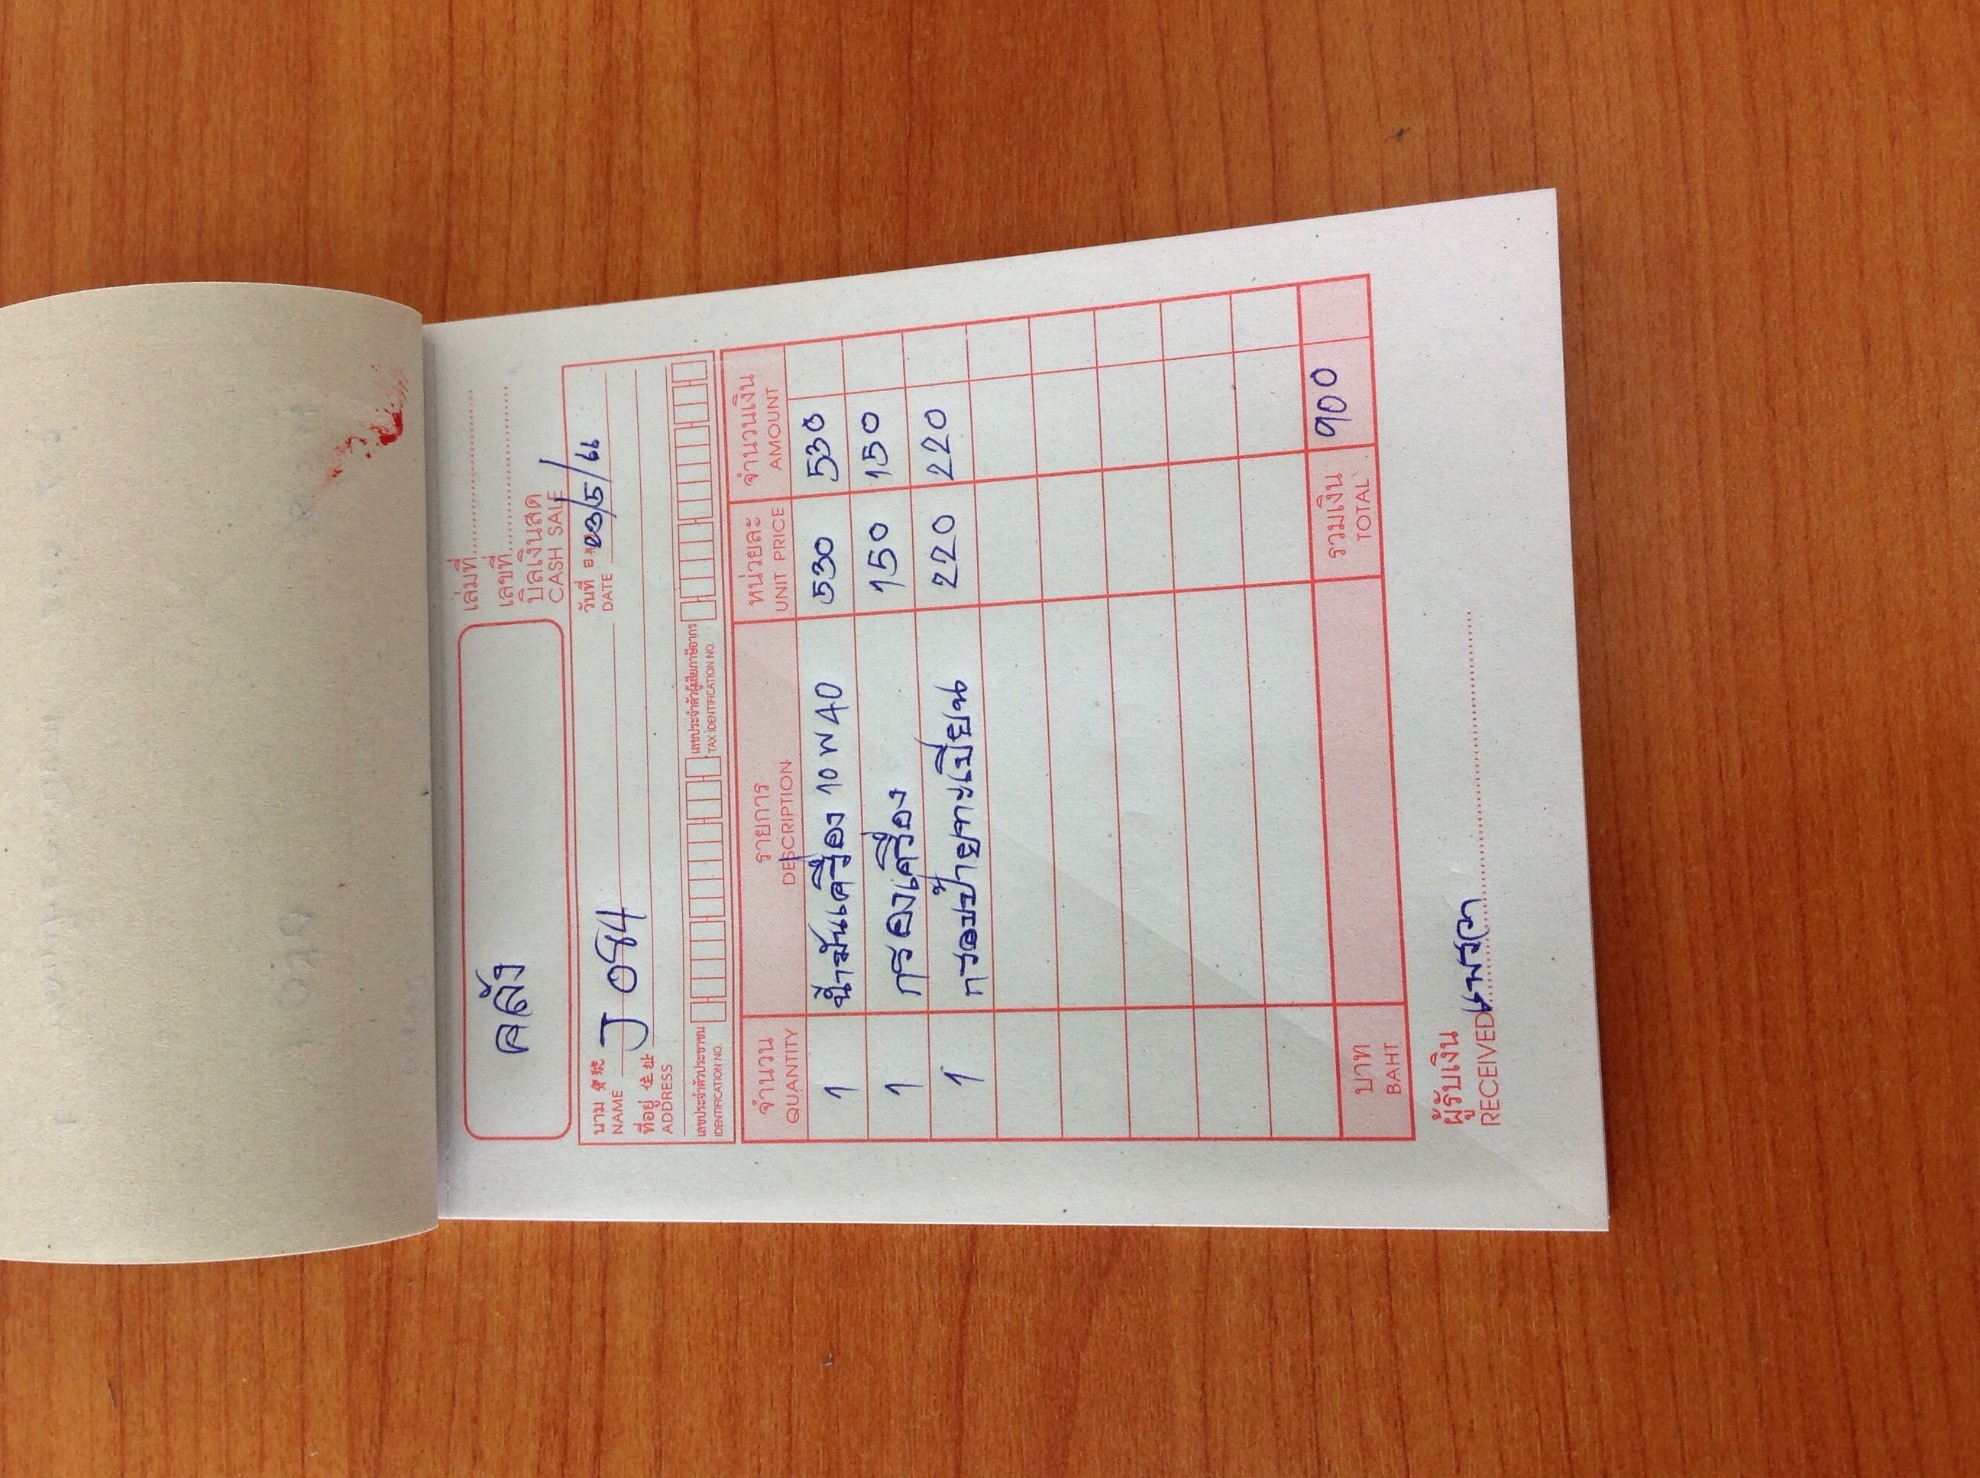 คลัง
เล่มที่
เลขที่
บิลเงินสด
CASH SALE
นาม
NAME J 084
วันที่ 23/5/66
DATE
ที่อยู่ 住址
ADDRESS
เลขประจำตัวประชาชน
IDENTIFICATION NO.
เลขประจำตัวผู้เสียภาษีอากร
TAX IDENTIFICATION NO.
จำนวน รายการ หน่วยละ จำนวนเงิน
QUANTITY DESCRIPTION UNIT PRICE AMOUNT
1 น้ำมันเครื่อง 10W40 530 530
1 กรองเครื่อง 150 150
1 กรอบป้ายทะเบียน 220 220
บาท รวมเงิน 900
BAHT TOTAL
ผู้รับเงิน
RECEIVED